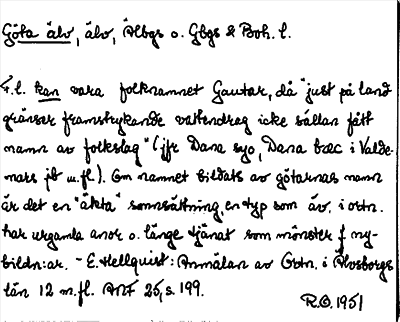 Göta älv, älv, Älbgs o. Gbgs & Boh. l.
F.l. kan vara folknamnet Gautar, då "just på land
gränser framstrykande vattendrag icke sällan fått
namn av folkslag" (jfr Dana syo, Dana bæc i Valde-
mars jb m.fl.). Om namnet bildats av götarnas namn
är det en "äkta" samnsättning, en typ som äv. i ortn.
har urgamla anor o. länge tjänat som mönster f. ny-
bildn:ar. - E. Hellquist: Anmälan av Ortn. i Älvsborgs
län 12 m.fl. ANF 25, s. 199.
R.O. 1951